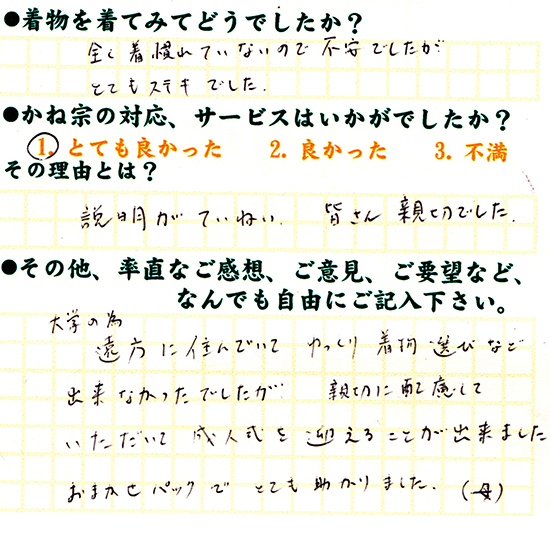 ●着物を着てみてどうでしたか?
全く着慣れていないので不安でしたが
とてもステキでした.
●かね宗の対応、サービスはいかがでしたか?
1. とても良かった 2. 良かった 3. 不満
その理由とは?
説明がていねい. 皆さん親切でした.
●その他、率直なご感想、ご意見、ご要望など、
なんでも自由にご記入下さい。
大学の為
遠方に住んでいて ゆっくり着物選びなど
出来なかったでしたが 親切に配慮して
いただいて 成人式を迎えることが出来ました
おまかせパックで とても助かりました. (母)